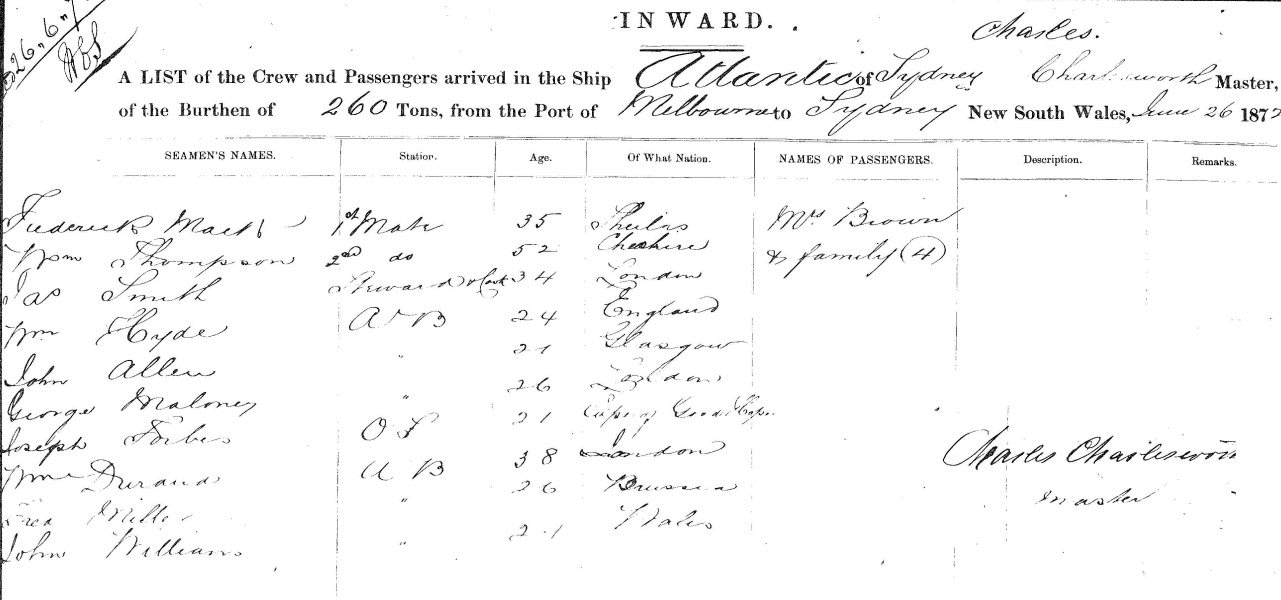 INWARD.
Charles.
A LIST of the Crew and Passengers arrived in the Ship Atlantic of Sydney Charlesworth Master,
of the Burthen of 260 Tons, from the Port of Melbourne to Sydney New South Wales, June 26 187
SEAMEN'S NAMES. Station. Age. Of What Nation. NAMES OF PASSENGERS. Description. Remarks.
Frederick 1st Mate 35 Mrs Brown
Wm Thompson 2nd do 52 Cheshire & family (4)
Jas Smith Steward & Cook 34 London
Wm Hyde A B 24 England
John Allen " 21 Glasgow
George Maloney " 26 London
Joseph Forbes O S 21 Cape of Good Hope
Wm Durand A B 38 London
Fred Miller " 26 Prussia
John Williams " 21 Wales
Charles Charlesworth
Master